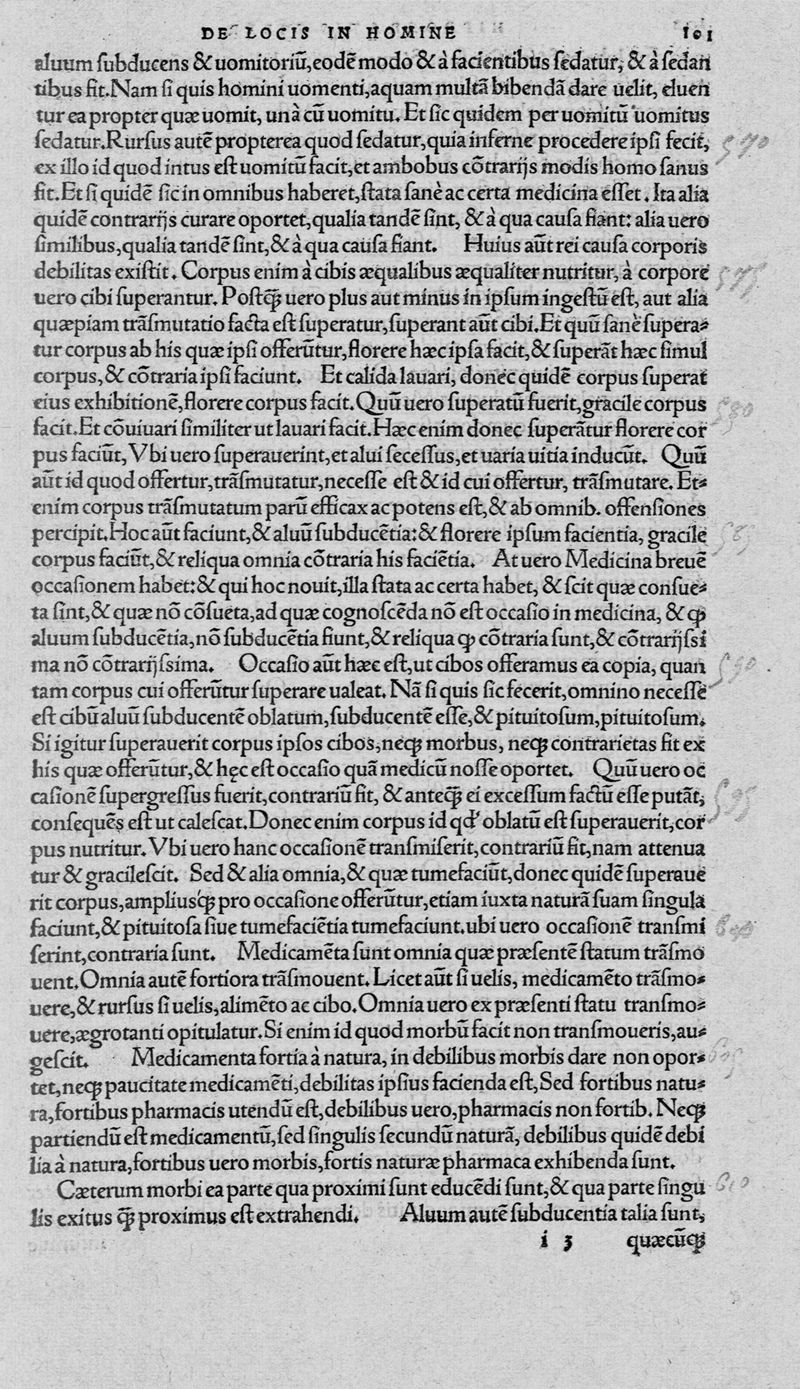 DE LOCIS IN HOMINE 101
aluum ſubducens & uomitoriũ,eodẽ modo & à facientibus ſedatur, & à ſedan
tibus fit.Nam ſi quis homini uomenti,aquam multã bibendã dare uelit, eluen
tur ea propter quæ uomit, unà cũ uomitu. Et ſic quidem per uomitũ uomitus
ſedatur.Rurſus autẽ propterea quod ſedatur,quia inferne procedere ipſi fecit,
ex illo id quod intus eſt uomitũ facit,et ambobus cõtrarijs modis homo ſanus
fit.Et ſi quidẽ ſic in omnibus haberet,ſtata ſanè ac certa medicina eſſet. Ita alia
quidẽ contrarijs curare oportet,qualia tandẽ ſint, & à qua cauſa fiant: alia uero
ſimilibus,qualia tandẽ ſint,& à qua cauſa fiant. Huius aũt rei cauſa corporis
debilitas exiſtit. Corpus enim à cibis æqualibus æqualiter nutritur, à corpore
uero cibi ſuperantur. Poſtꝗ̃ uero plus aut minus in ipſum ingeſtũ eſt, aut alia
quæpiam trãſmutatio facta eſt ſuperatur,ſuperant aũt cibi.Et quũ ſanè ſupera-
tur corpus ab his quæ ipſi offerũtur,florere hæc ipſa facit,& ſuperãt hæc ſimul
corpus,& cõtraria ipſi faciunt. Et calida lauari, donec quidẽ corpus ſuperat
eius exhibitionẽ,florere corpus facit.Quũ uero ſuperatũ fuerit,gracile corpus
facit.Et cõuiuari ſimiliter ut lauari facit.Hæc enim donec ſuperãtur florere cor
pus faciũt,Vbi uero ſuperauerint,et alui ſeceſſus,et uaria uitia inducũt. Quũ
aũt id quod offertur,trãſmutatur,neceſſe eſt & id cui offertur, trãſmutare. Et-
enim corpus trãſmutatum parũ efficax ac potens eſt,& ab omnib. offenſiones
percipit.Hoc aũt faciunt,& aluũ ſubducẽtia:& florere ipſum facientia, gracile
corpus faciũt,& reliqua omnia cõtraria his faciẽtia. At uero Medicina breuẽ
occaſionem habet:& qui hoc nouit,illa ſtata ac certa habet, & ſcit quæ conſue-
ta ſint,& quæ nõ cõſueta,ad quæ cognoſcẽda nõ eſt occaſio in medicina, & ꝙ
aluum ſubducẽtia,nõ ſubducẽtia fiunt,& reliqua ꝙ cõtraria ſunt,& cõtrarijſsi
ma nõ cõtrarijſsima. Occaſio aũt hæc eſt,ut cibos offeramus ea copia, quan
tam corpus cui offerũtur ſuperare ualeat. Nã ſi quis ſic fecerit,omnino neceſſe
eſt cibũ aluũ ſubducentẽ oblatum,ſubducentẽ eſſe,& pituitoſum,pituitoſum.
Si igitur ſuperauerit corpus ipſos cibos,neqꝫ morbus, neqꝫ contrarietas fit ex
his quæ offerũtur,& hęc eſt occaſio quã medicũ noſſe oportet. Quũ uero oc
caſionẽ ſupergreſſus fuerit,contrariũ fit, & anteꝗ̃ ei exceſſum factũ eſſe putãt,
conſequẽs eſt ut caleſcat.Donec enim corpus id qd' oblatũ eſt ſuperauerit,cor
pus nutritur. Vbi uero hanc occaſionẽ tranſmiſerit,contrariũ fit,nam attenua
tur & gracileſcit. Sed & alia omnia,& quæ tumefaciũt,donec quidẽ ſuperaue
rit corpus,ampliusꝗ̃ pro occaſione offerũtur,etiam iuxta naturã ſuam ſingula
faciunt,& pituitoſa ſiue tumefaciẽtia tumefaciunt.ubi uero occaſionẽ tranſmi
ſerint,contraria ſunt. Medicamẽta ſunt omnia quæ præſentẽ ſtatum trãſmo
uent.Omnia autẽ fortiora trãſmouent.Licet aũt ſi uelis, medicamẽto trãſmo-
uere,& rurſus ſi uelis,alimẽto ac cibo.Omnia uero ex præſenti ſtatu tranſmo-
uere,ægrotanti opitulatur.Si enim id quod morbũ facit non tranſmoueris,au-
geſcit. Medicamenta fortia à natura, in debilibus morbis dare non opor-
tet,neqꝫ paucitate medicamẽti,debilitas ipſius facienda eſt,Sed fortibus natu-
ra,fortibus pharmacis utendũ eſt,debilibus uero,pharmacis non fortib. Neqꝫ
partiendũ eſt medicamentũ,ſed ſingulis ſecundũ naturã, debilibus quidẽ debi
lia à natura,fortibus uero morbis,fortis naturæ pharmaca exhibenda ſunt.
Cæterum morbi ea parte qua proximi ſunt educẽdi ſunt,& qua parte ſingu
lis exitus ꝗ̃ proximus eſt extrahendi. Aluum autẽ ſubducentia talia ſunt,
i 3 quæcũqꝫ